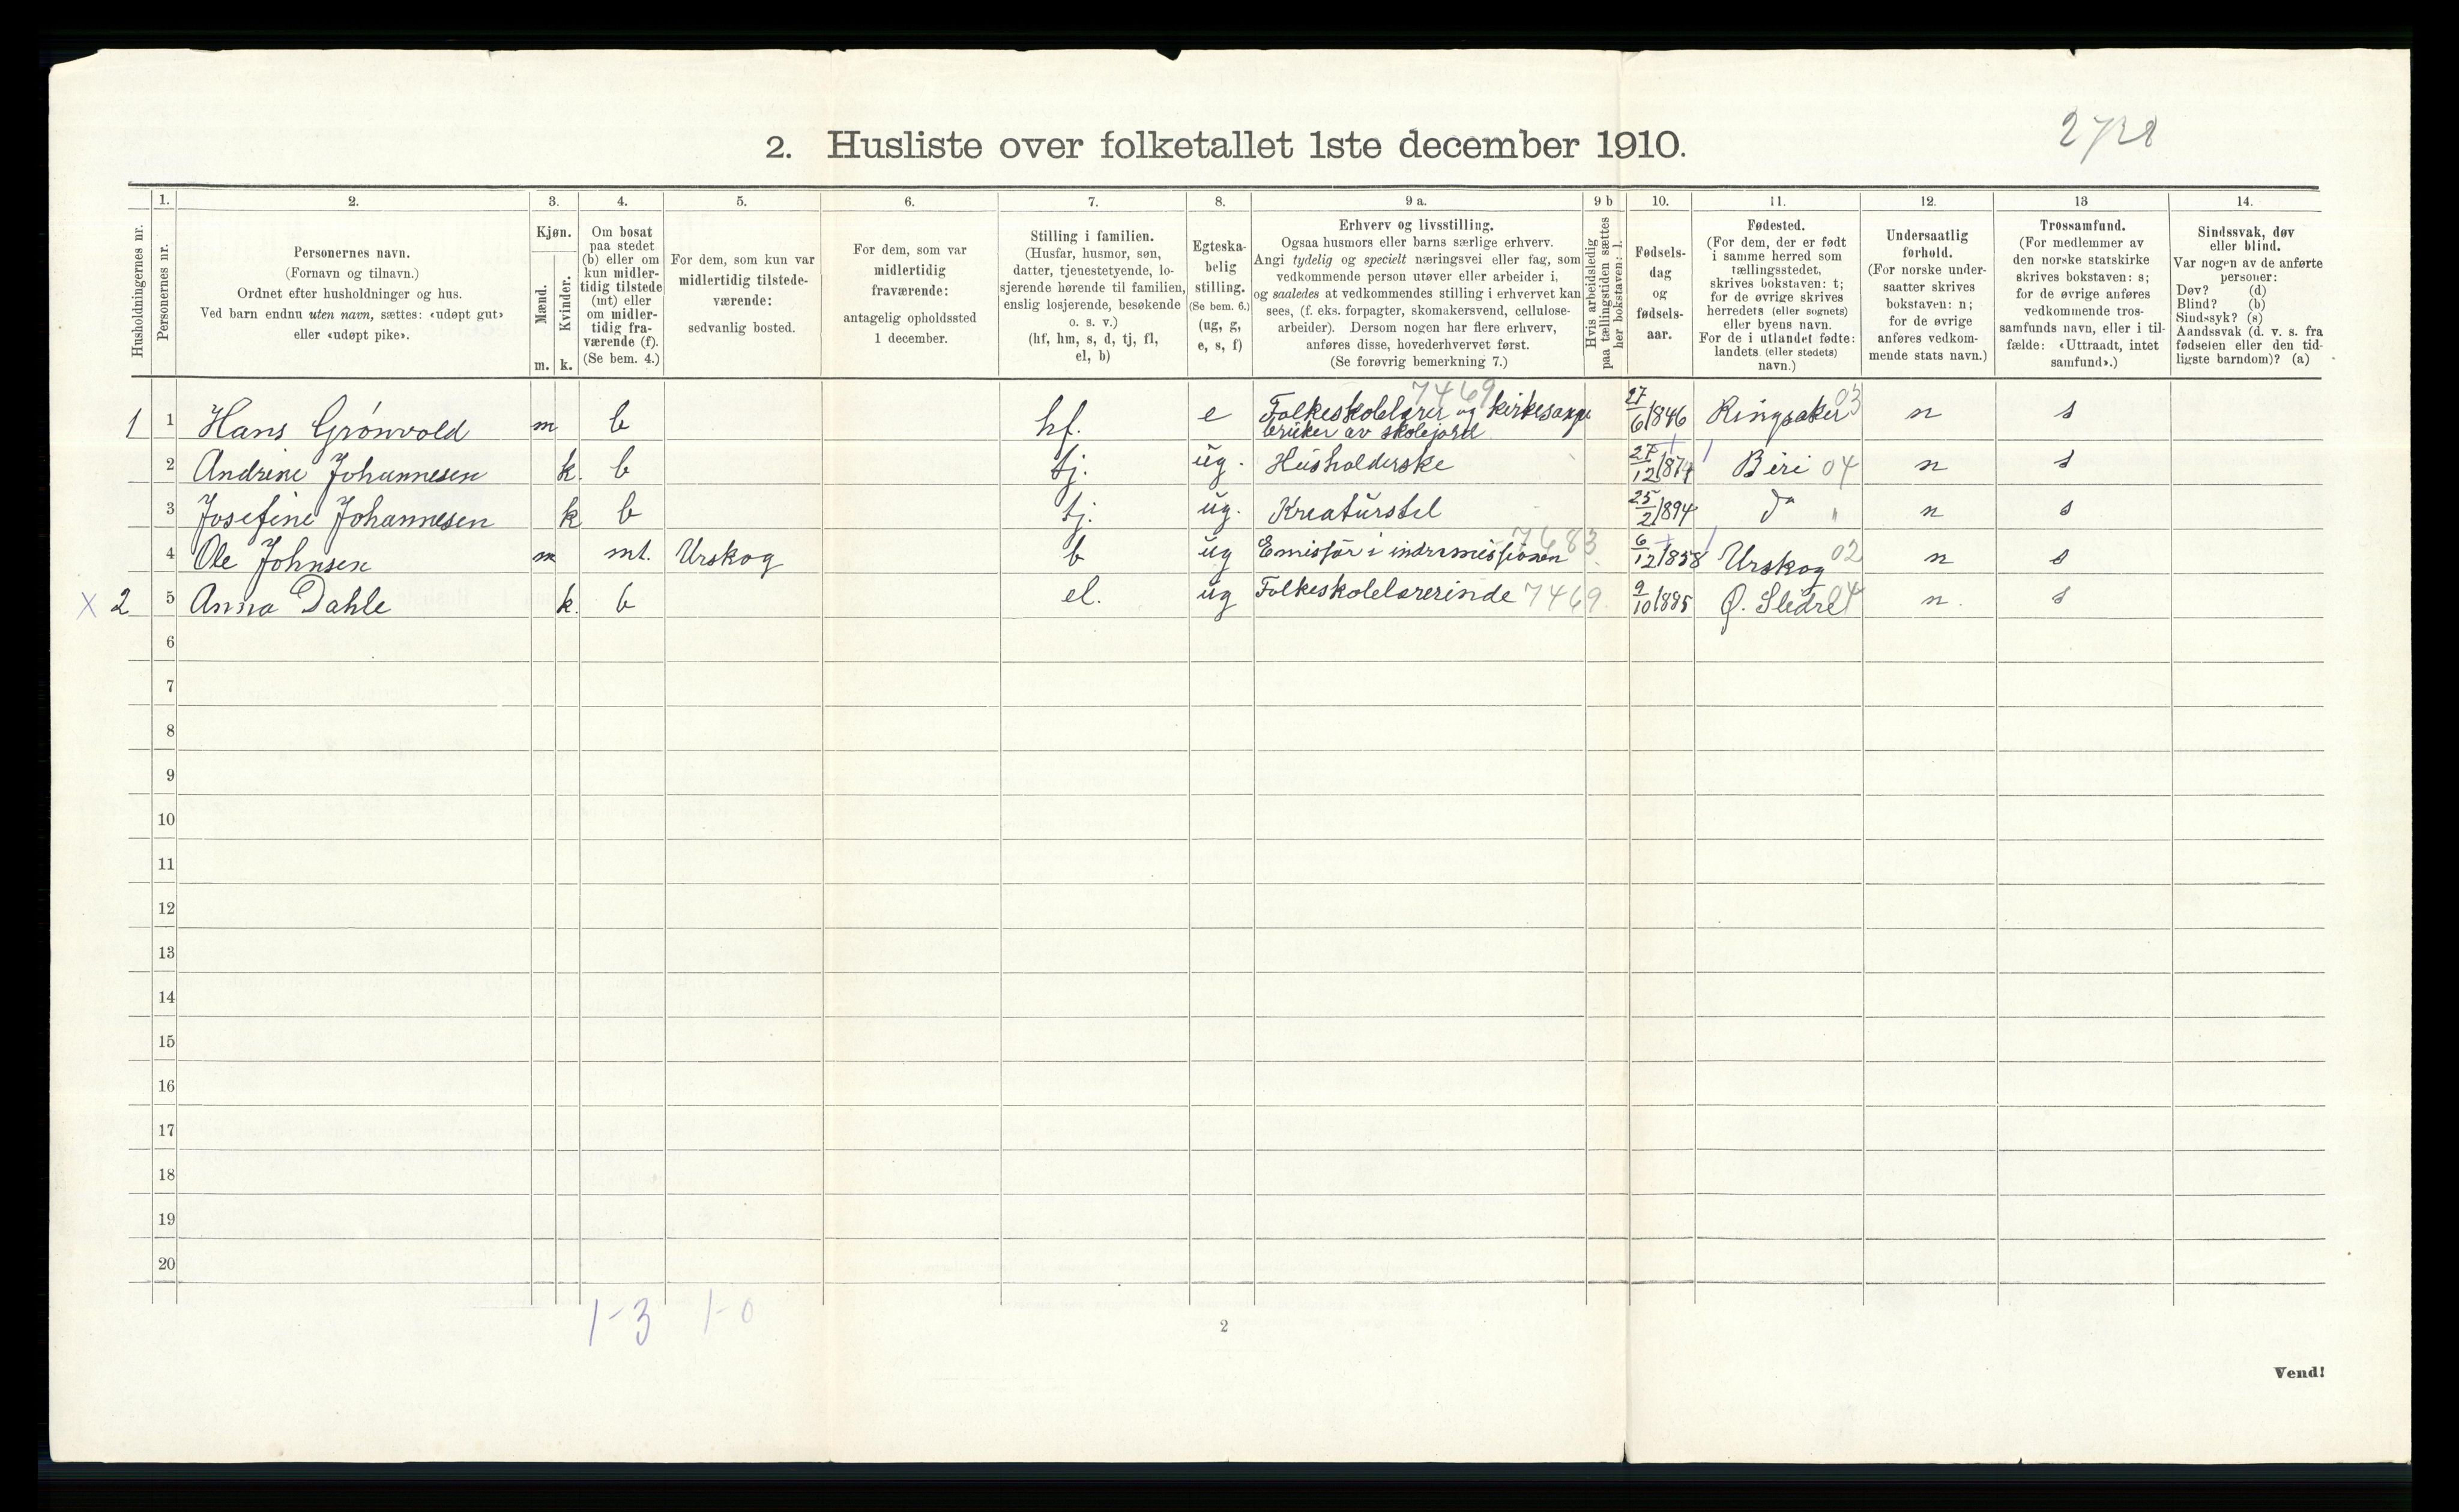 2728
2. Husliste over folketallet 1ste december 1910.
Husholdningernes nr.
1.
Personernes nr.
2.
Personernes navn.
(Fornavn og tilnavn.)
Ordnet efter husholdninger og hus.
Ved barn endnu uten navn, sættes: «udøpt gut»
eller «udøpt pike».
3.
Kjøn.
Mænd.
Kvinder.
m. k.
4.
Om bosat
paa stedet
(b) eller om
kun midler-
tidig tilstede
(mt) eller
om midler-
tidig fra-
værende (f).
(Se bem. 4.)
5.
For dem, som kun var
midlertidig tilstede-
værende:
sedvanlig bosted.
6.
For dem, som var
midlertidig
fraværende:
antagelig opholdssted
1 december.
7.
Stilling i familien.
(Husfar, husmor, søn,
datter, tjenestetyende, lo-
sjerende hørende til familien,
enslig losjerende, besøkende
o. s. v.)
(hf, hm, s, d, tj, fl,
el, b)
8.
Egteska-
belig
stilling.
(Se bem. 6.)
(ug, g,
e, s, f)
9 a.
Erhverv og livsstilling.
Ogsaa husmors eller barns særlige erhverv.
Angi tydelig og specielt næringsvei eller fag, som
vedkommende person utøver eller arbeider i,
og saaledes at vedkommendes stilling i erhvervet kan
sees, (f. eks. forpagter, skomakersvend, cellulose-
arbeider). Dersom nogen har flere erhverv,
anføres disse, hovederhvervet først.
(Se forøvrig bemerkning 7.)
9 b
Hvis arbeidsledig
paa tællingstiden sættes
her bokstaven: l.
10.
Fødsels-
dag
og
fødsels-
aar.
11.
Fødested.
(For dem, der er født
i samme herred som
tællingsstedet,
skrives bokstaven: t;
for de øvrige skrives
herredets (eller sognets)
eller byens navn.
For de i utlandet fødte:
landets (eller stedets)
navn.)
12.
Undersaatlig
forhold.
(For norske under-
saatter skrives
bokstaven: n;
for de øvrige
anføres vedkom-
mende stats navn.)
13
Trossamfund.
(For medlemmer av
den norske statskirke
skrives bokstaven: s;
for de øvrige anføres
vedkommende tros-
samfunds navn, eller i til-
fælde: «Uttraadt, intet
samfund».)
14.
Sindssvak, døv
eller blind.
Var nogen av de anførte
personer:
Døv? (d)
Blind? (b)
Sindssyk? (s)
Aandssvak (d. v. s. fra
fødselen eller den tid-
ligste barndom)? (a)
7469
1 1 Hans Grønvold m b hf. e Folkeskolelærer og kirkesange 27/6 1846 Ringsaker 03 n s
bruker av skolejord
2 Andrine Johannesen k. b tj. ug. Husholderske 27/12 1874 Biri 04 n s
3 Josefine Johannesen k b tj. ug. Kreaturstel 25/2 1894 do " n s
4 Ole Johnsen m mt. Urskog b ug Emissær i indremissionen 7683 6/12 1858 Urskog 02 n s
x 2 5 Anna Dahle k. b el. ug Folkeskolelærerinde 7469 9/10 1885 Ø. Slidre 04 n. s
6
7
8
9
10
11
12
13
14
15
16
17
18
19
20
1-3 1-0
2
Vend!